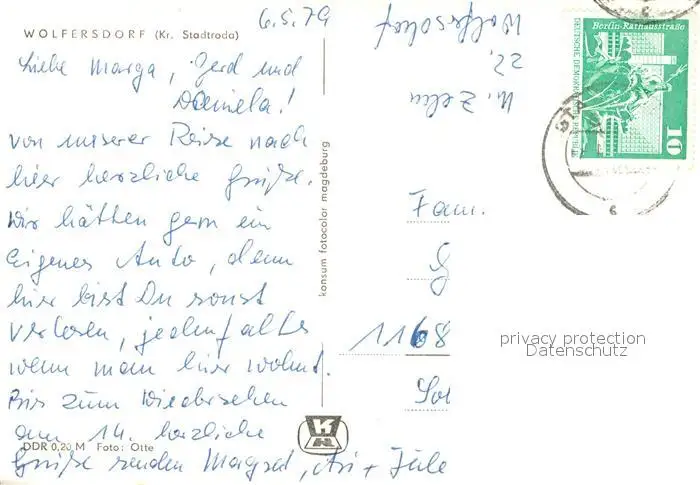 WOLFERSDORF (Kr. Stadtroda)
6.5.79
Liebe Marga, Gerd und
Daniela!
von unserer Reise nach
hier herzliche Grüße.
Wir hätten gern ein
Eigenes Auto, denn
hier bist Du sonst
verloren, jedenfalls
wenn man hier wohnt.
Bis zum Wiedersehen
am 14. herzliche
Grüße senden Margret, +
DDR 0,20 M Foto: Otte
konsum fotocolor magdeburg
Wolfersdorf
22,
Berlin-Rathausstraße
DEUTSCHE DEMOKRATISCHE REPUBLIK
10
Fam.
G
1168
privacy protection
Datenschutz